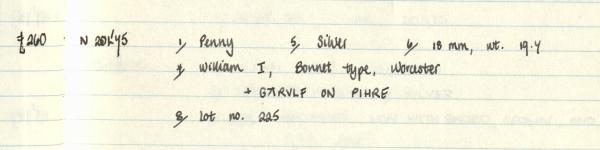 £260 N 1/ Penny 5/ Silver 6/ 18 mm, wt. 19.4
*/ William I, Bonnet type, Worcester
+ GARVLF ON PIHRE
8/ Lot no. 225